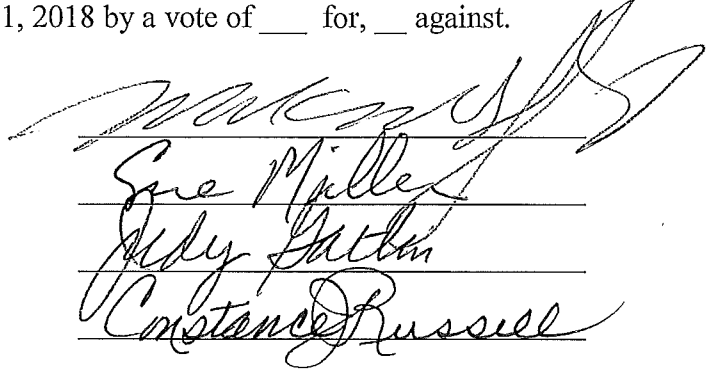 1, 2018 by a vote of ___ for, __ against.
Sue Miller
Judy Gatlin
Constance J Russell